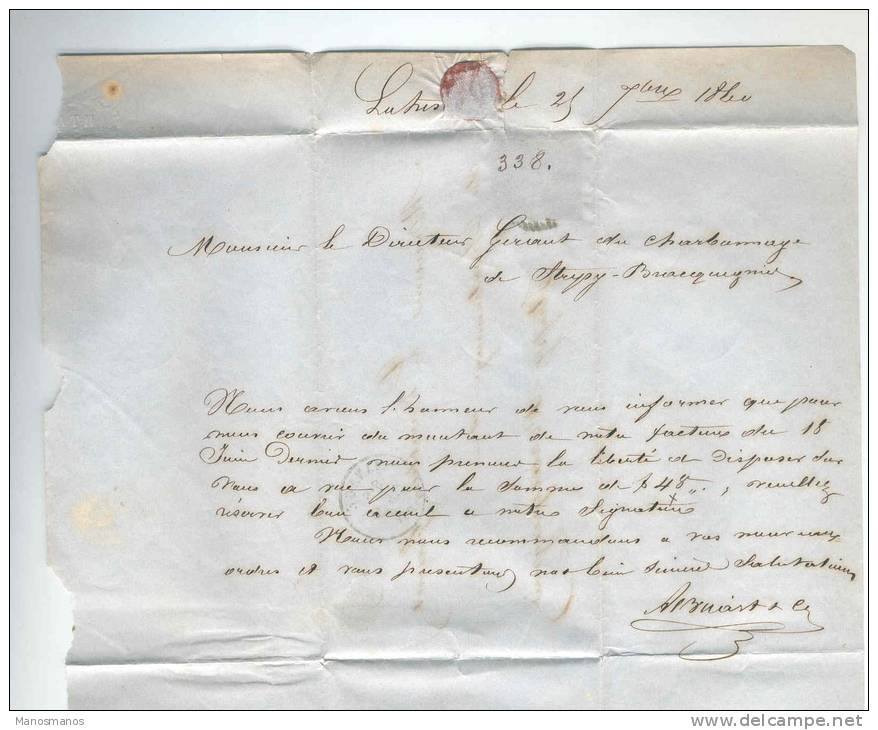 le 25 7bre 1860
338.
Monsieur le Directeur Gérant du charbonnage
de Strépy-Bracquegnies
Nous avons l'honneur de vous informer que pour
nous couvrir du montant de notre facture du 18
Juin Dernier nous prenons la liberté de disposer sur
Vous a vue pour la Somme de 48 ,, , veuillez
réserver bon accueil a notre Signature
Nous nous recommandons a vos nouveaux
ordres et vous présentons nos bien sincères Salutations
Manosmanos
www.delcampe.net